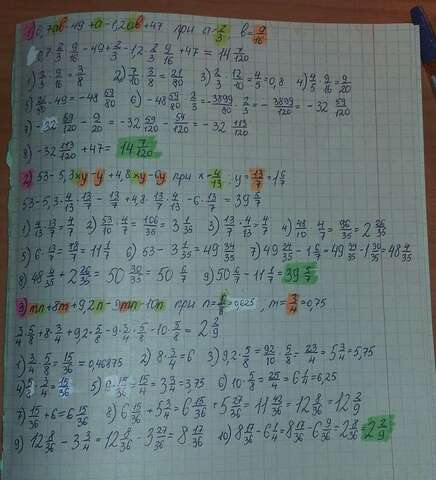 1) 0,7ab-49+a-1,2ab+47 при a=2/3 b=9/16
0,7·2/3·9/16-49+2/3-1,2·2/3·9/16+47=14 7/120
1) 2/3·9/16=3/8 2) 7/10·3/8=21/80 3) 2/3·12/10=4/5=0,8 4) 4/5·9/16=9/20
5) 21/80-49=-48 59/80 6) -48 59/80-2/3=-3899/80-2/3=-3809/120=-32 59/120
7) -32 59/120-9/20=-32 59/120-54/120=-32 113/120
8) -32 113/120+47=14 7/120
2) 53-5,3xy-y+4,8xy-6y при x=4/13; y=13/7=1 6/7
53-5,3·4/13·13/7-13/7+4,8·13/7·4/13-6·13/7=39 5/7
1) 4/13·13/7=4/7 2) 53/10·4/7=106/35=3 1/35 3) 13/7·4/13=4/7 4) 48/10·4/7=96/35=2 26/35
5) 6·13/7=78/7=11 1/7 6) 53-3 1/35=49 34/35 7) 49 34/35-1 6/7=49 34/35-1 30/35=48 4/35
8) 48 4/35+2 26/35=50 30/35=50 6/7 9) 50 6/7-11 1/7=39 5/7
3) mn+8m+9,2n-9mn-10n при n=5/8=0,625, m=3/4=0,75
3/4·5/8+8·3/4+9,2·5/8-9·3/4·5/8-10·5/8=2 2/9
1) 3/4·5/8=15/36=0,46875 2) 8·3/4=6 3) 9,2·5/8=92/10·5/8=23/4=5 3/4=5,75
4) 5/8·3/4=15/36 5) 9·15/36=15/4=3 3/4=3,75 6) 10·5/8=25/4=6 1/4=6,25
7) 15/36+6=6 15/36 8) 6 15/36+5 3/4=6 15/36+5 27/36=11 42/36=12 8/36=12 2/9
9) 12 8/36-3 3/4=12 8/36-3 27/36=8 17/36 10) 8 17/36-6 1/4=8 17/36-6 9/36=2 8/36=2 2/9